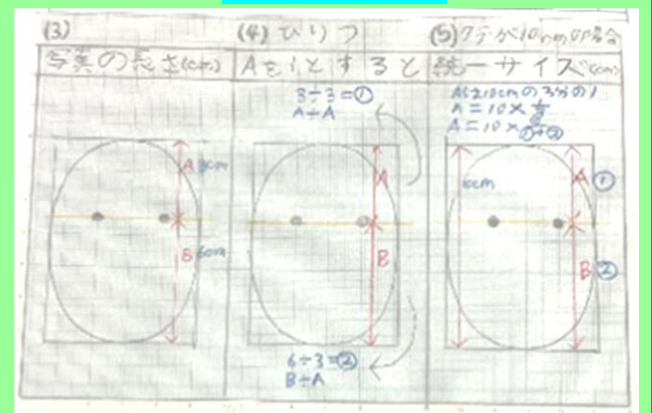 (3)
写真の長さ(cm)
A 3cm
B 6cm
(4) ひりつ
Aを1とすると
3÷3=①
A÷A
A
B
6÷3=②
B÷A
(5) タテが10cmの場合
統一サイズ(cm)
Aは10cmの3分の1
A=10×
A=10×
10cm
A ①
B ②